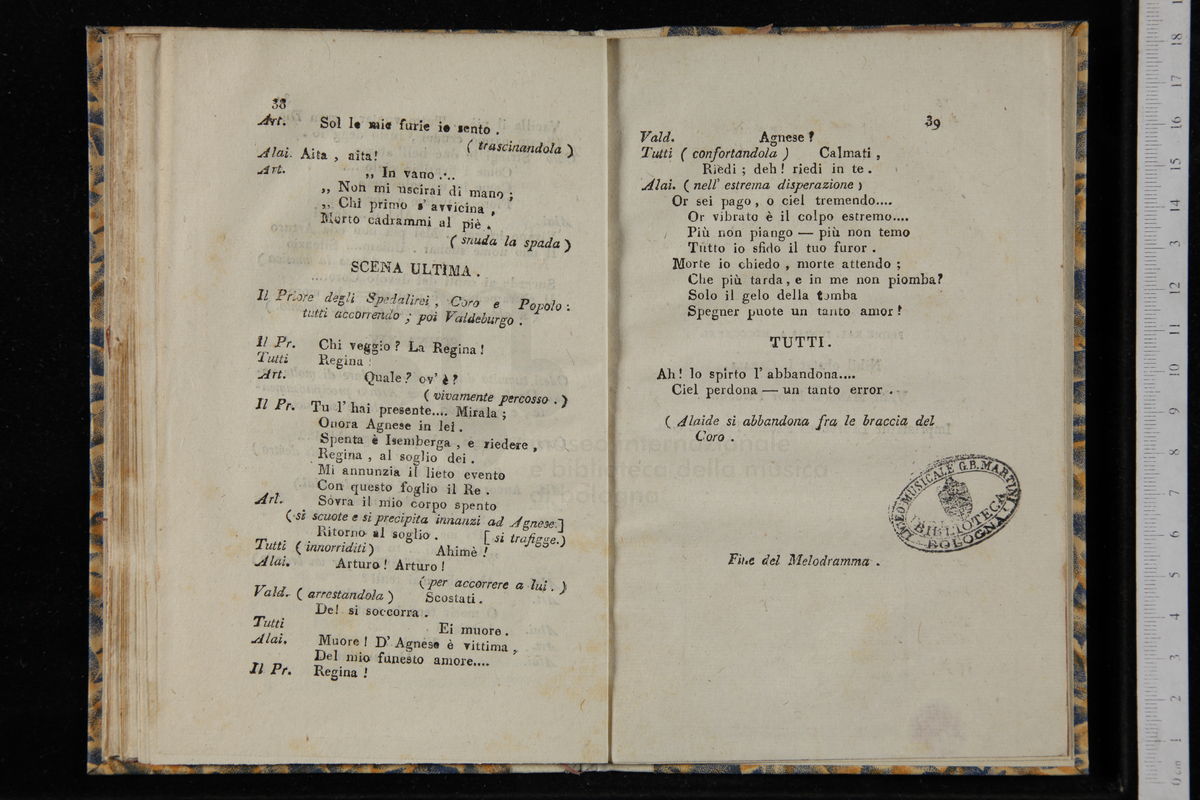 38
Art. Sol le mie furie io sento .
( trascinandola )
Alai. Aita , aita!
Art. ,, In vano ....
,, Non mi uscirai di mano ;
,, Chi primo s' avvicina ,
Morto cadrammi al piè .
( snuda la spada )
SCENA ULTIMA .
Il Priore degli Spedalirei , Coro e Popolo :
tutti accorrendo ; poi Valdeburgo .
Il Pr. Chi veggio ? La Regina !
Tutti Regina :
Art. Quale ? ov' è ?
( vivamente percosso . )
Il Pr. Tu l' hai presente.... Mirala ;
Onora Agnese in lei .
Spenta è Isemberga , e riedere ,
Regina , al soglio dei .
Mi annunzia il lieto evento
Con questo foglio il Re .
Art. Sovra il mio corpo spento
( si scuote e si precipita innanzi ad Agnese ]
Ritorno al soglio . [ si trafigge.)
Tutti ( innorriditi ) Ahimè !
Alai. Arturo ! Arturo !
( per accorrere a lui . )
Vald. ( arrestandola ) Scostati .
De! si soccorra .
Tutti Ei muore .
Alai. Muore ! D' Agnese è vittima ,
Del mio funesto amore....
Il Pr. Regina !
39
Vald. Agnese ?
Tutti ( confortandola ) Calmati ,
Riedi ; deh ! riedi in te .
Alai. ( nell' estrema disperazione )
Or sei pago , o ciel tremendo....
Or vibrato è il colpo estremo....
Più non piango — più non temo
Tutto io sfido il tuo furor .
Morte io chiedo , morte attendo ;
Che più tarda , e in me non piomba?
Solo il gelo della tomba
Spegner puote un tanto amor !
TUTTI .
Ah! lo spirto l' abbandona....
Ciel perdona — un tanto error .
( Alaide si abbandona fra le braccia del
Coro .
museo internazionale
e biblioteca della musica
di bologna
LICEO MUSICALE G.B. MARTINI
BIBLIOTECA
BOLOGNA
Fine del Melodramma .